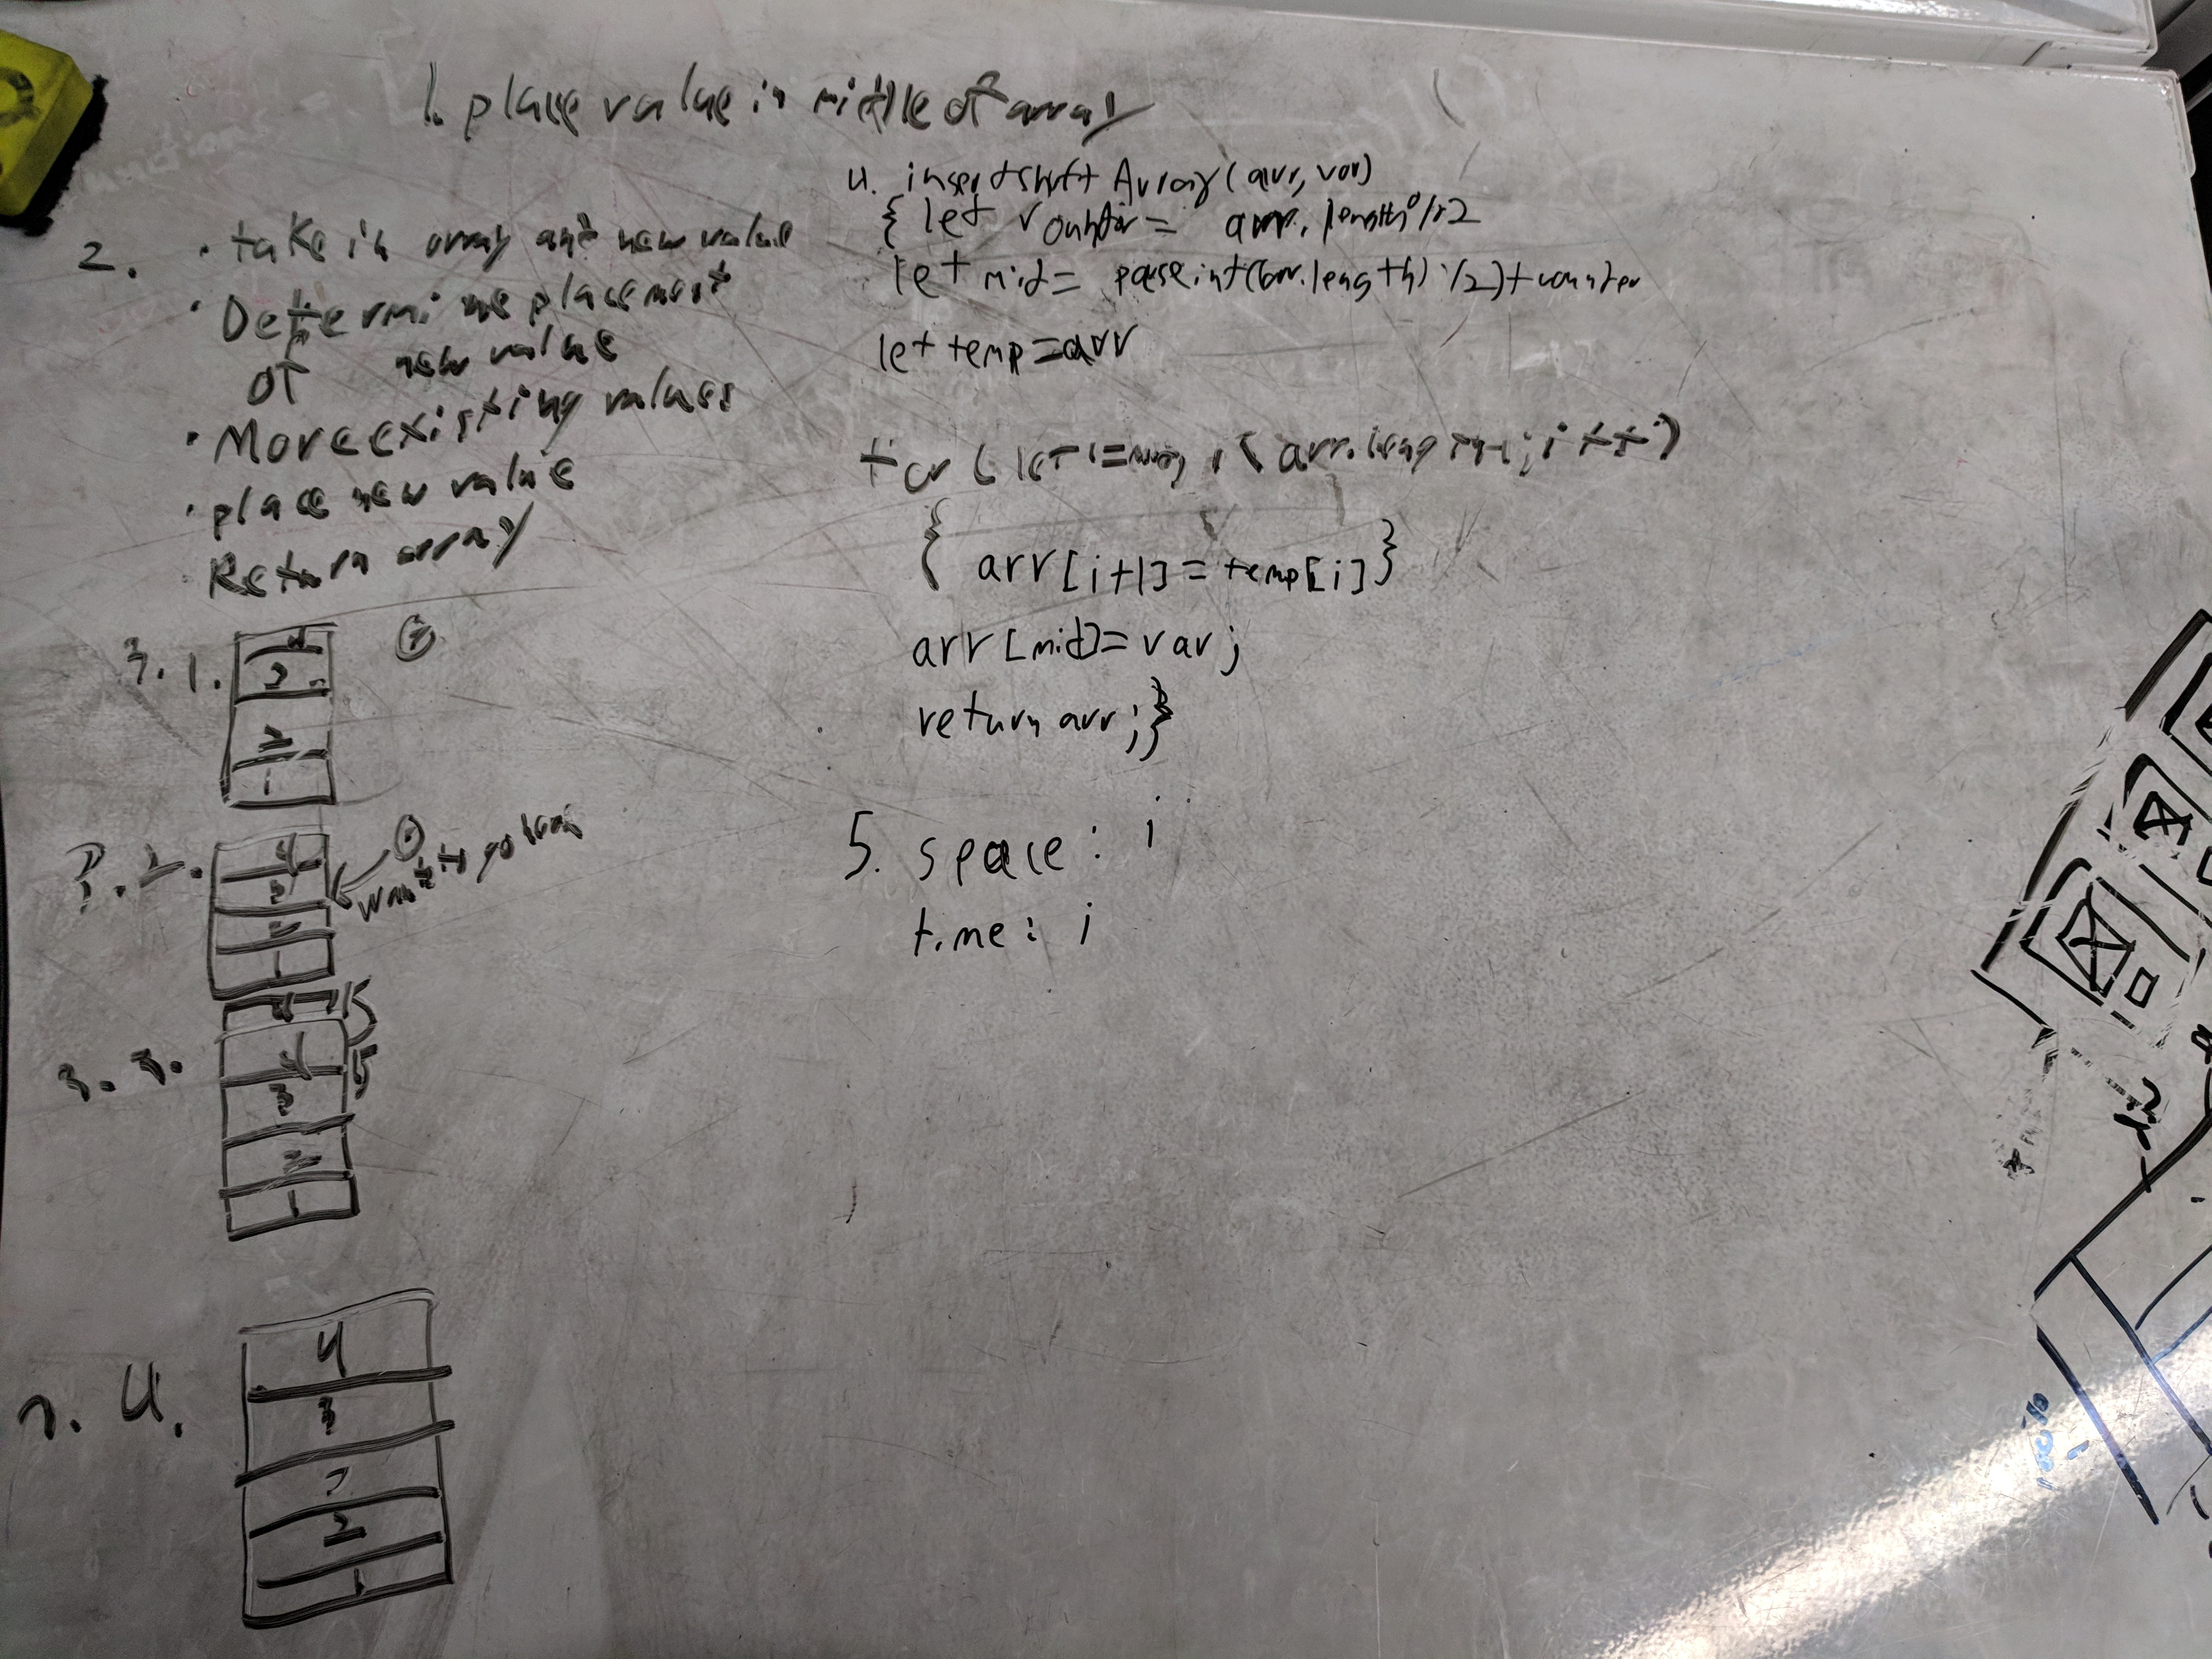 1. place value in middle of array
2. · take in array and new value
· Determine placement
of new value
· Move existing values
· place new value
Return array
3. 1.
4
3
2
1
3. 2.
4
3
2
1
want to go here
3. 3.
4
4
3
2
1
3. 4.
4
3
2
1
4. insertshift Array(arr, var)
{ let counter = arr.length % 2
let mid = parseint(arr.length) /2) + counter
let temp = arr
for ( let i = mid; i < arr.length-1; i++)
{ arr[i+1] = temp[i]}
arr[mid] = var;
return arr;}
5. space: i
time: i